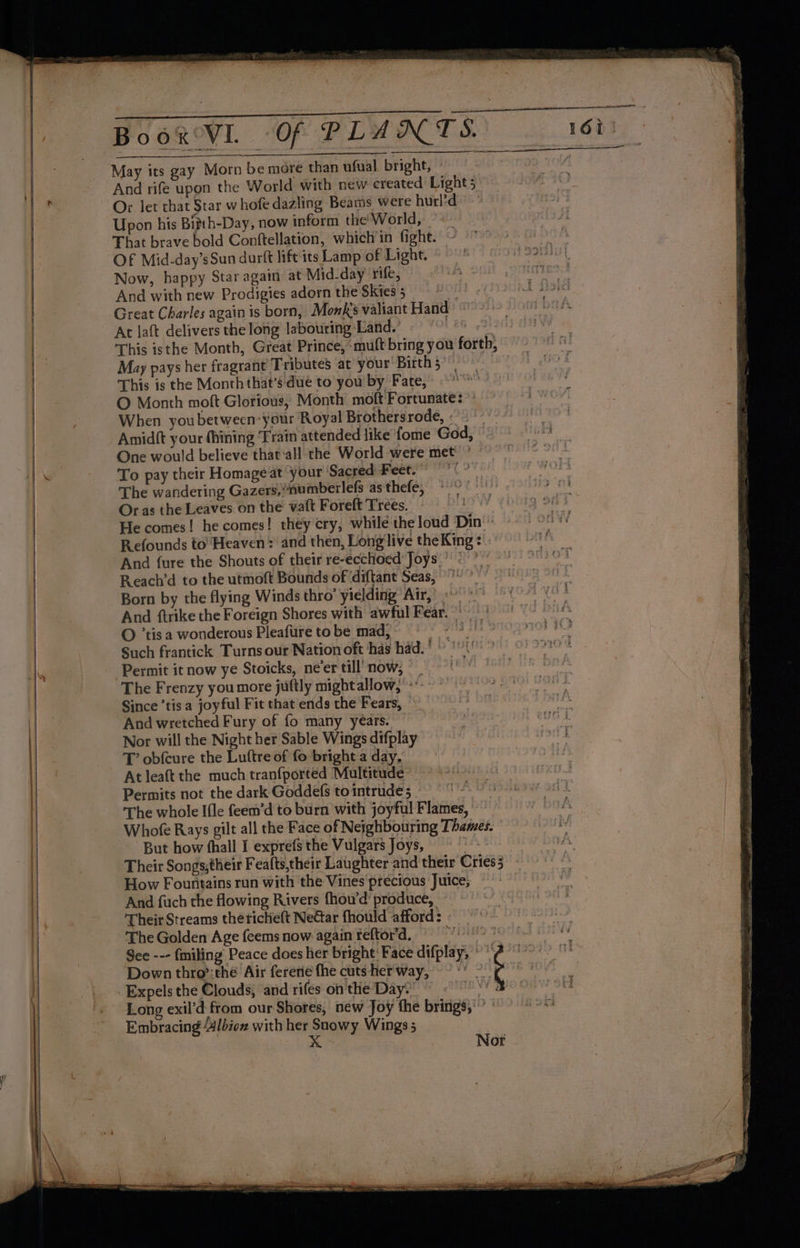 Book VI. Of PLANTS. 161
May its gay Morn be more than uſual bright,
And riſe upon the World with new created Light;
Or let that Star whoſe dazling Beams were hurl'd
Upon his Birth-Day, now inform the World,
That brave bold Conſtellation, which in fight
Of Mid-day's Sun durſt lift its Lamp of Light.
Now, happy Star again at Mid-day riſe,
And with new Prodigies adorn the Skies;
Great Charles again is born, Monk's valiant Hand
At laſt delivers the long labouring Land.
This is the Month, Great Prince, muſt bring you forth,
May pays her fragrant Tributes at your Birth;
This is the Month that's due to you by Fate,
O Month moſt Glorious, Month moſt Fortunate:
When you between your Royal Brothers rode,
Amidſt your ſhining Train attended like ſome God,
One would believe that all the World were met
To pay their Homage at your Sacred Feet.
The wandering Gazers, numberleſs as theſe,
Or as the Leaves on the vaſt Foreſt Trees.
He comes! he comes! they cry, while the loud Din
Reſounds to Heaven: and then, Long live the King:
And ſure the Shouts of their re-ecchoed Joys
Reach'd to the utmoſt Bounds of diſtant Seas,
Born by the flying Winds thro' yielding Air,
And ſtrike the Foreign Shores with awful Fear.
O 'tis a wonderous Pleaſure to be mad,
Such frantick Turns our Nation oft has had.
Permit it now ye Stoicks, ne'er till now,
The Frenzy you more juſtly might allow,
Since 'tis a joyful Fit that ends the Fears,
And wretched Fury of ſo many years.
Nor will the Night her Sable Wings diſplay
T' obſcure the Luſtre of ſo bright a day.
At leaſt the much tranſported Multitude
Permits not the dark Goddeſs to intrude;
The whole Iſle ſeem'd to burn with joyful Flames,
Whoſe Rays gilt all the Face of Neighbouring Thames.
But how ſhall I expreſs the Vulgars Joys,
Their Songs, their Feaſts, their Laughter and their Cries;
How Fountains run with the Vines precious Juice,
And ſuch the flowing Rivers ſhou'd produce,
Their Streams the richeſt Nectar ſhould afford:
The Golden Age ſeems now again reſtor'd,
See --- ſmiling Peace does her bright Face diſplay,
Down thro' the Air ſerene ſhe cuts her way,
Expels the Clouds, and riſes on the Day.
Long exil'd from our Shores, new Joy ſhe brings,
Embracing Albion with her Snowy Wings;
X Nor